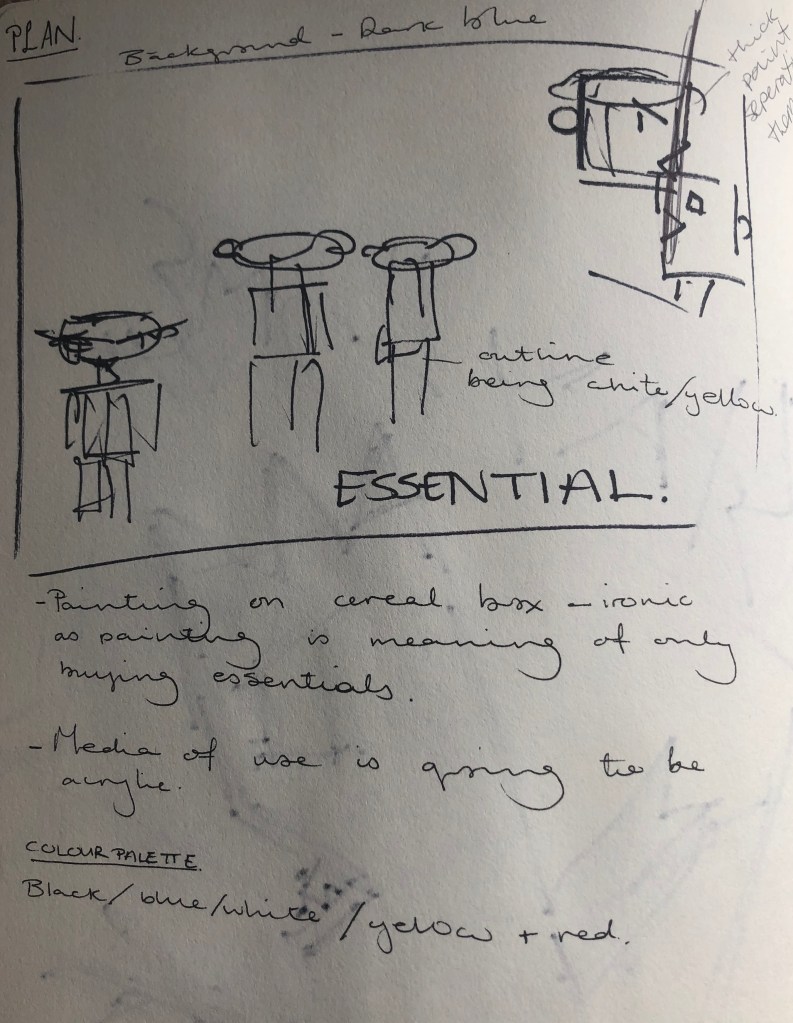 PLAN.
Background - Dark blue
thick
paint
seperating
them
outline
being white/yellow.
ESSENTIAL.
-Painting on cereal box - ironic
as painting is meaning of only
buying essentials.
- Media of use is going to be
acrylic.
COLOUR PALETTE.
Black/blue/white/yellow + red.